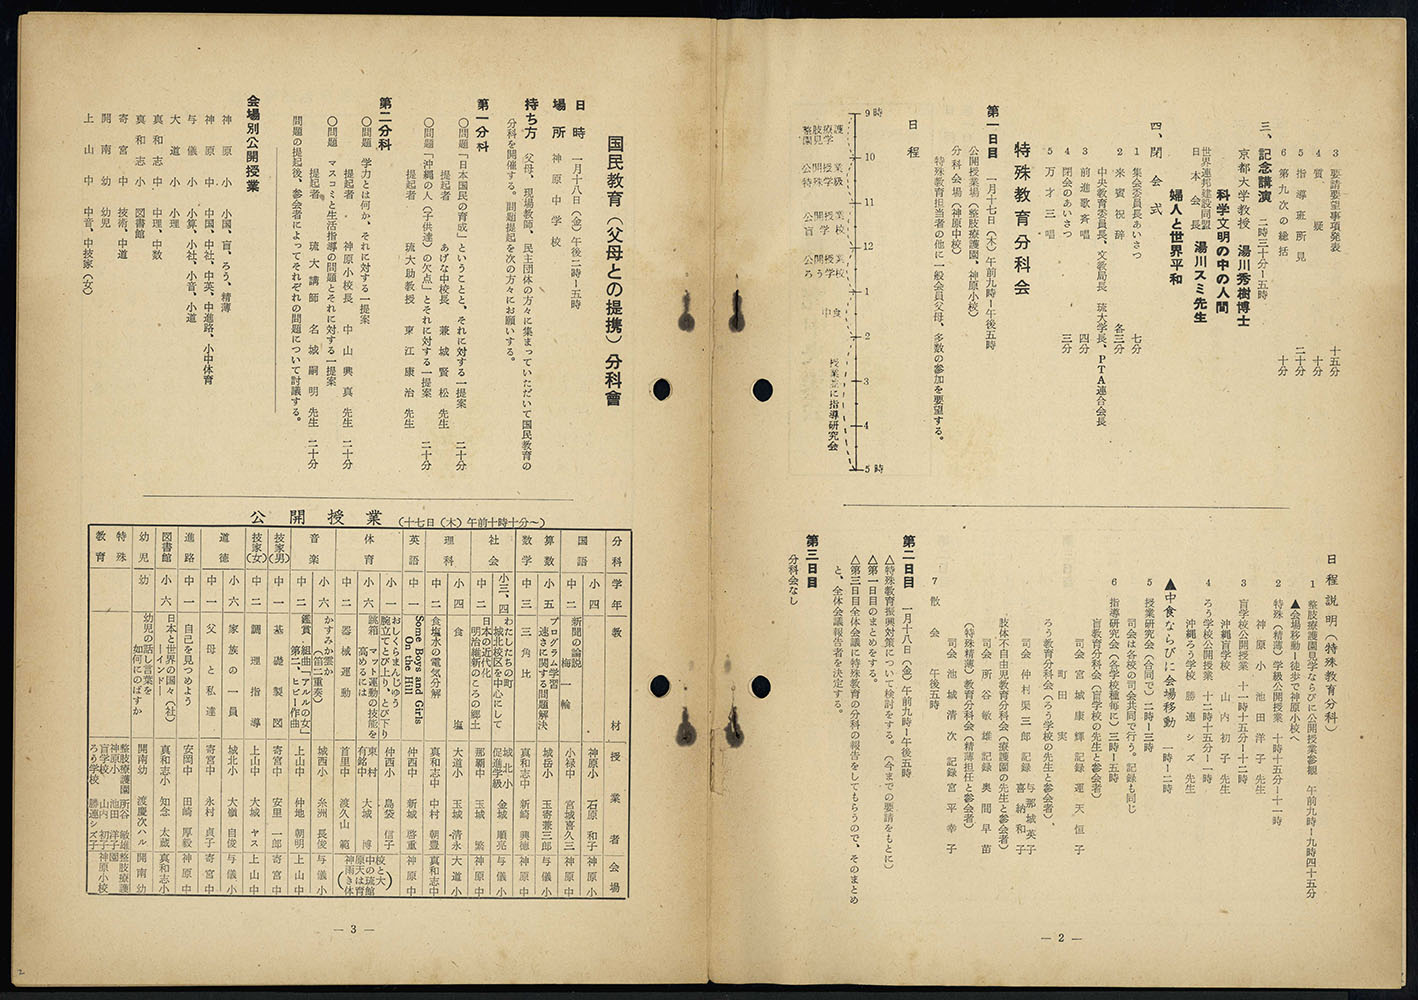 3　要請要望事項発表　十五分
4　質　　疑　十分
5　指導班所見　二十分
6　第九次の総括　十分
三、記念講演　二時三十分―五時
京都大学教授　湯川秀樹博士
科学文明の中の人間
世界連邦建設同盟
日　本　会　長　湯川スミ先生
婦人と世界平和
四、閉　会　式
1　集会委員長あいさつ　七分
2　来賓祝辞　各三分
中央教育委員長、文教局長　琉大学長、ＰＴＡ連合会長
3　前進歌斉唱　四分
4　閉会のあいさつ　三分
5　万才三唱
特殊教育分科会
第一日目　一月十七日（木）午前九時―午後五時
公開授業場（整肢療護園、神原小校）
分科会場（神原中校）
特殊教育担当者の他に一般会員父母、多数の参加を要望する。
日　程
9時
10
11
12
1
2
3
4
5時
整肢療護園見学
公開授業
特殊学級
公開授業
盲学校
公開授業
ろう学校
中食
授業並に指導研究会
日程説明（特殊教育分科）
1　整肢療護園見学ならびに公開授業参観　午前九時―九時四十五分
▲会場移動―徒歩で神原小校へ
2　特殊（精薄）学級公開授業　十時十五分―十一時
神　原　小　池　田　洋　子　先生
3　盲学校公開授業　十一時十五分―十二時
沖縄盲学校　山　内　初　子　先生
4　ろう学校公開授業　十二時十五分―一時
沖縄ろう学校　勝　連　シ　ズ　先生
▲中食ならびに会場移動　一時―二時
5　授業研究会（合同で）二時―三時
司会は各校の司会共同で行う。記録も同じ
6　指導研究会（各学校種毎に）三時―五時
盲教育分科会（盲学校の先生と参会者）
司会　宮　城　康　輝　記録　運　天　恒　子
町　田　　実
ろう教育分科会（ろう学校の先生と参会者）、
司会　仲　村　渠　三　郎　記録　与　那　城　英　子
喜　納　和　子
肢体不自由児教育分科会（療護園の先生と参会者）
司会　所　谷　敏　雄　記録　奥　間　早　苗
（特殊精薄）教育分科会（精薄担任と参会者）
司会　池　城　清　次　記録　宮　平　幸　子
7　散　　会　午後五時
第二日目　一月十八日（金）午前九時―午後五時
△特殊教育振興対策について検討をする。（今までの要請をもとに）
△第一日目のまとめをする。
△第三日目全体会議に特殊教育の分科の報告をしてもらうので、そのまとめ
と、全体会議報告者を決定する。
第三日目
分科会なし
― 2 ―
国民教育（父母との提携）分科會
日　時　一月十八日（金）午後二時―五時
場　所　神　原　中　学　校
持ち方　父母、現場教師、民主団体の方々に集まっていただいて国民教育の
分科を開催する。問題提起を次の方々にお願いする。
第一分科
〇問題「日本国民の育成」ということと、それに対する一提案
提起者　あげな中校長　兼　城　賢　松　先生　二十分
〇問題「沖縄の人（子供達）の欠点」とそれに対する一提案
提起者　琉大助教授　東　江　康　治　先生　二十分
第二分科
〇問題　学力とは何か、それに対する一提案
提起者　神原小校長　中　山　興　真　先生　二十分
〇問題　マスコミと生活指導の問題とそれに対する一提案
提起者　琉　大　講　師　名　城　嗣　明　先生　二十分
問題の提起後、参会者によってそれぞれの問題について討議する。
会場別公開授業
神　原　小　小国、盲、ろう、精薄
神　原　中　中国、中社、中英、中進路、小中体育
与　儀　小　小算、小社、小音、小道
大　道　小　小理
真和志中　中理、中数
真和志小　図書館
寄　宮　中　技術、中道
開　南　幼　幼児
上　山　中　中音、中技家（女）
公　開　授　業（十七日（木）午前十時十分～）
分科　学年　教　材　授　業　者　会場
国語　小　四　新聞の論説　神原小　石原　和子　神原小
中　二　梅　一　輪　小禄中　宮城喜久三　神原中
算数　小　五　プログラム学習　速さに関する問題解決　城岳小　玉寄兼三郎　与儀小
数学　中　三　三　角　比　真和志中　新崎　興徳　神原中
社会　小三、四　わたしたちの町　城北校区を中心にして　城北小　促進学級　金城　順亮　与儀小
中　二　日本の近代化　明治維新のころの郷土　那覇中　玉城　繁　神原中
理科　小　四　食　塩　大道小　玉城　清永　大道小
中　二　食塩水の電気分解　真和志中　中村　朝豊　真和志中
英語　中　一　Some Boys and Girls On the Hill　仲西中　新城　啓重　神原中
体育　小　一　おしくらまんじゅう　腕立てとび上り、とび下り　仲西小　島袋　信子
小　六　跳箱　マット運動の技能を高めるには　東　村　有銘中　大城　博
中　二　器　械　運　動　首里中　渡久山　範
音楽　小　六　かすみか雲か（笛二重奏）　城西小　糸洲　長俊　与儀小
中　二　鑑賞　組曲「アルルの女」第二、ヒビー作曲　上山中　仲地　朝明　上山中
技家（男）　中　一　基　礎　製　図　寄宮中　安里　一郎　寄宮中
技家（女）　中　二　調　理　指　導　上山中　大城　ヤス　上山中
道徳　小　六　家　族　の　一　員　城北小　大嶺　自俊　与儀小
中　一　父　母　と　私　達　寄宮中　永村　貞子　寄宮中
進路　中　一　自己を見つめよう　安岡中　田崎　厚毅　神原中
図書館　小　六　日本と世界の国々（社）―インド―　真和志小　知念　太蔵　真和志小
幼児　幼　幼児の話し言葉を如何にのばすか　開南幼　渡慶次ハル　開南幼
特殊教育　整肢療護園　所谷　敏雄　整肢療護園
神原小　池田　洋子
盲学校　山内　初子
ろう学校　勝連シズ子　神原小校
― 3 ―
2